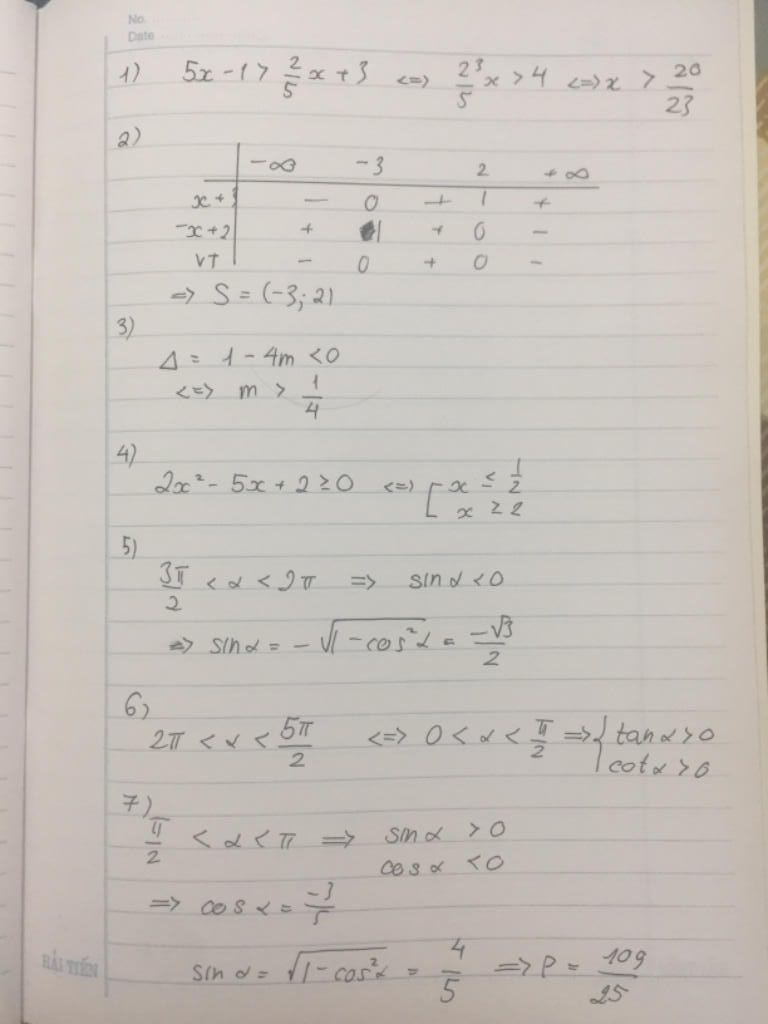 No.
Date
1) 5x - 1 > 2/5 x + 3 <=> 23/5 x > 4 <=> x > 20/23
2)
-∞ -3 2 +∞
x+3 - 0 + | +
-x+2 + | + 0 -
VT - 0 + 0 -
=> S = (-3; 2)
3)
Δ = 1 - 4m < 0
<=> m > 1/4
4)
2x² - 5x + 2 ≥ 0 <=> [ x ≤ 1/2
x ≥ 2
5)
3π/2 < α < 2π => sin α < 0
=> sin α = - √(1 - cos²α) = -√3/2
6)
2π < α < 5π/2 <=> 0 < α < π/2 => { tan α > 0
cot α > 0
7)
π/2 < α < π => sin α > 0
cos α < 0
=> cos α = -3/5
sin α = √(1 - cos²α) = 4/5 => P = 109/25
HẢI TIẾN